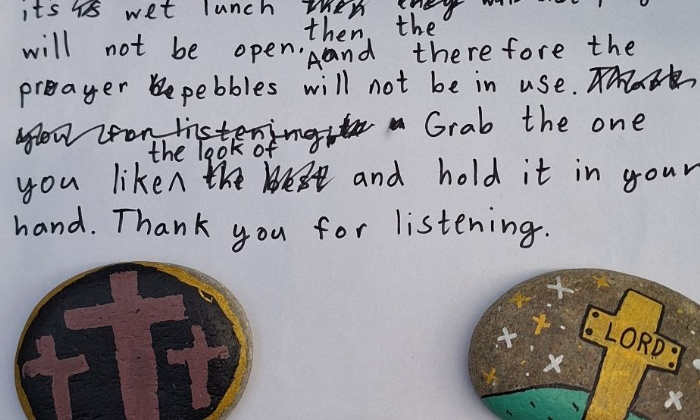 its wet lunch
then the
will not be open. And therefore the
prayer pebbles will not be in use.
Grab the one
the look of
you like and hold it in your
hand. Thank you for listening.
LORD